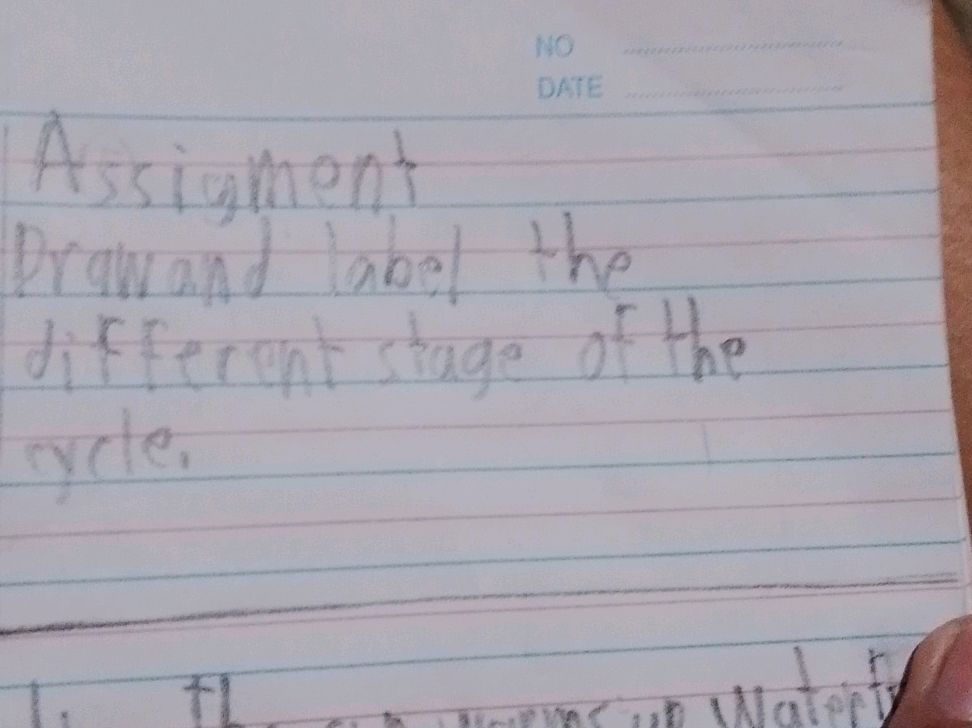 NO
DATE
Assigment
Draw and label the
different stage of the
cycle.
warms up Water